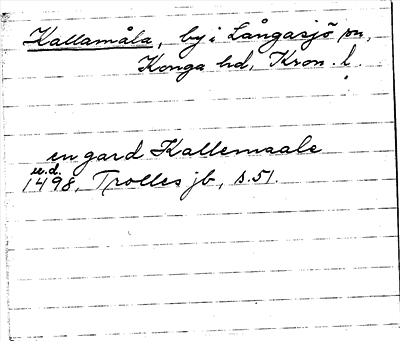 Kallamåla, by i Långasjö sn,
Konga hd, Kron. l.
en gard Kallemaale
u.d.
1498, Trolles jb, s. 51.